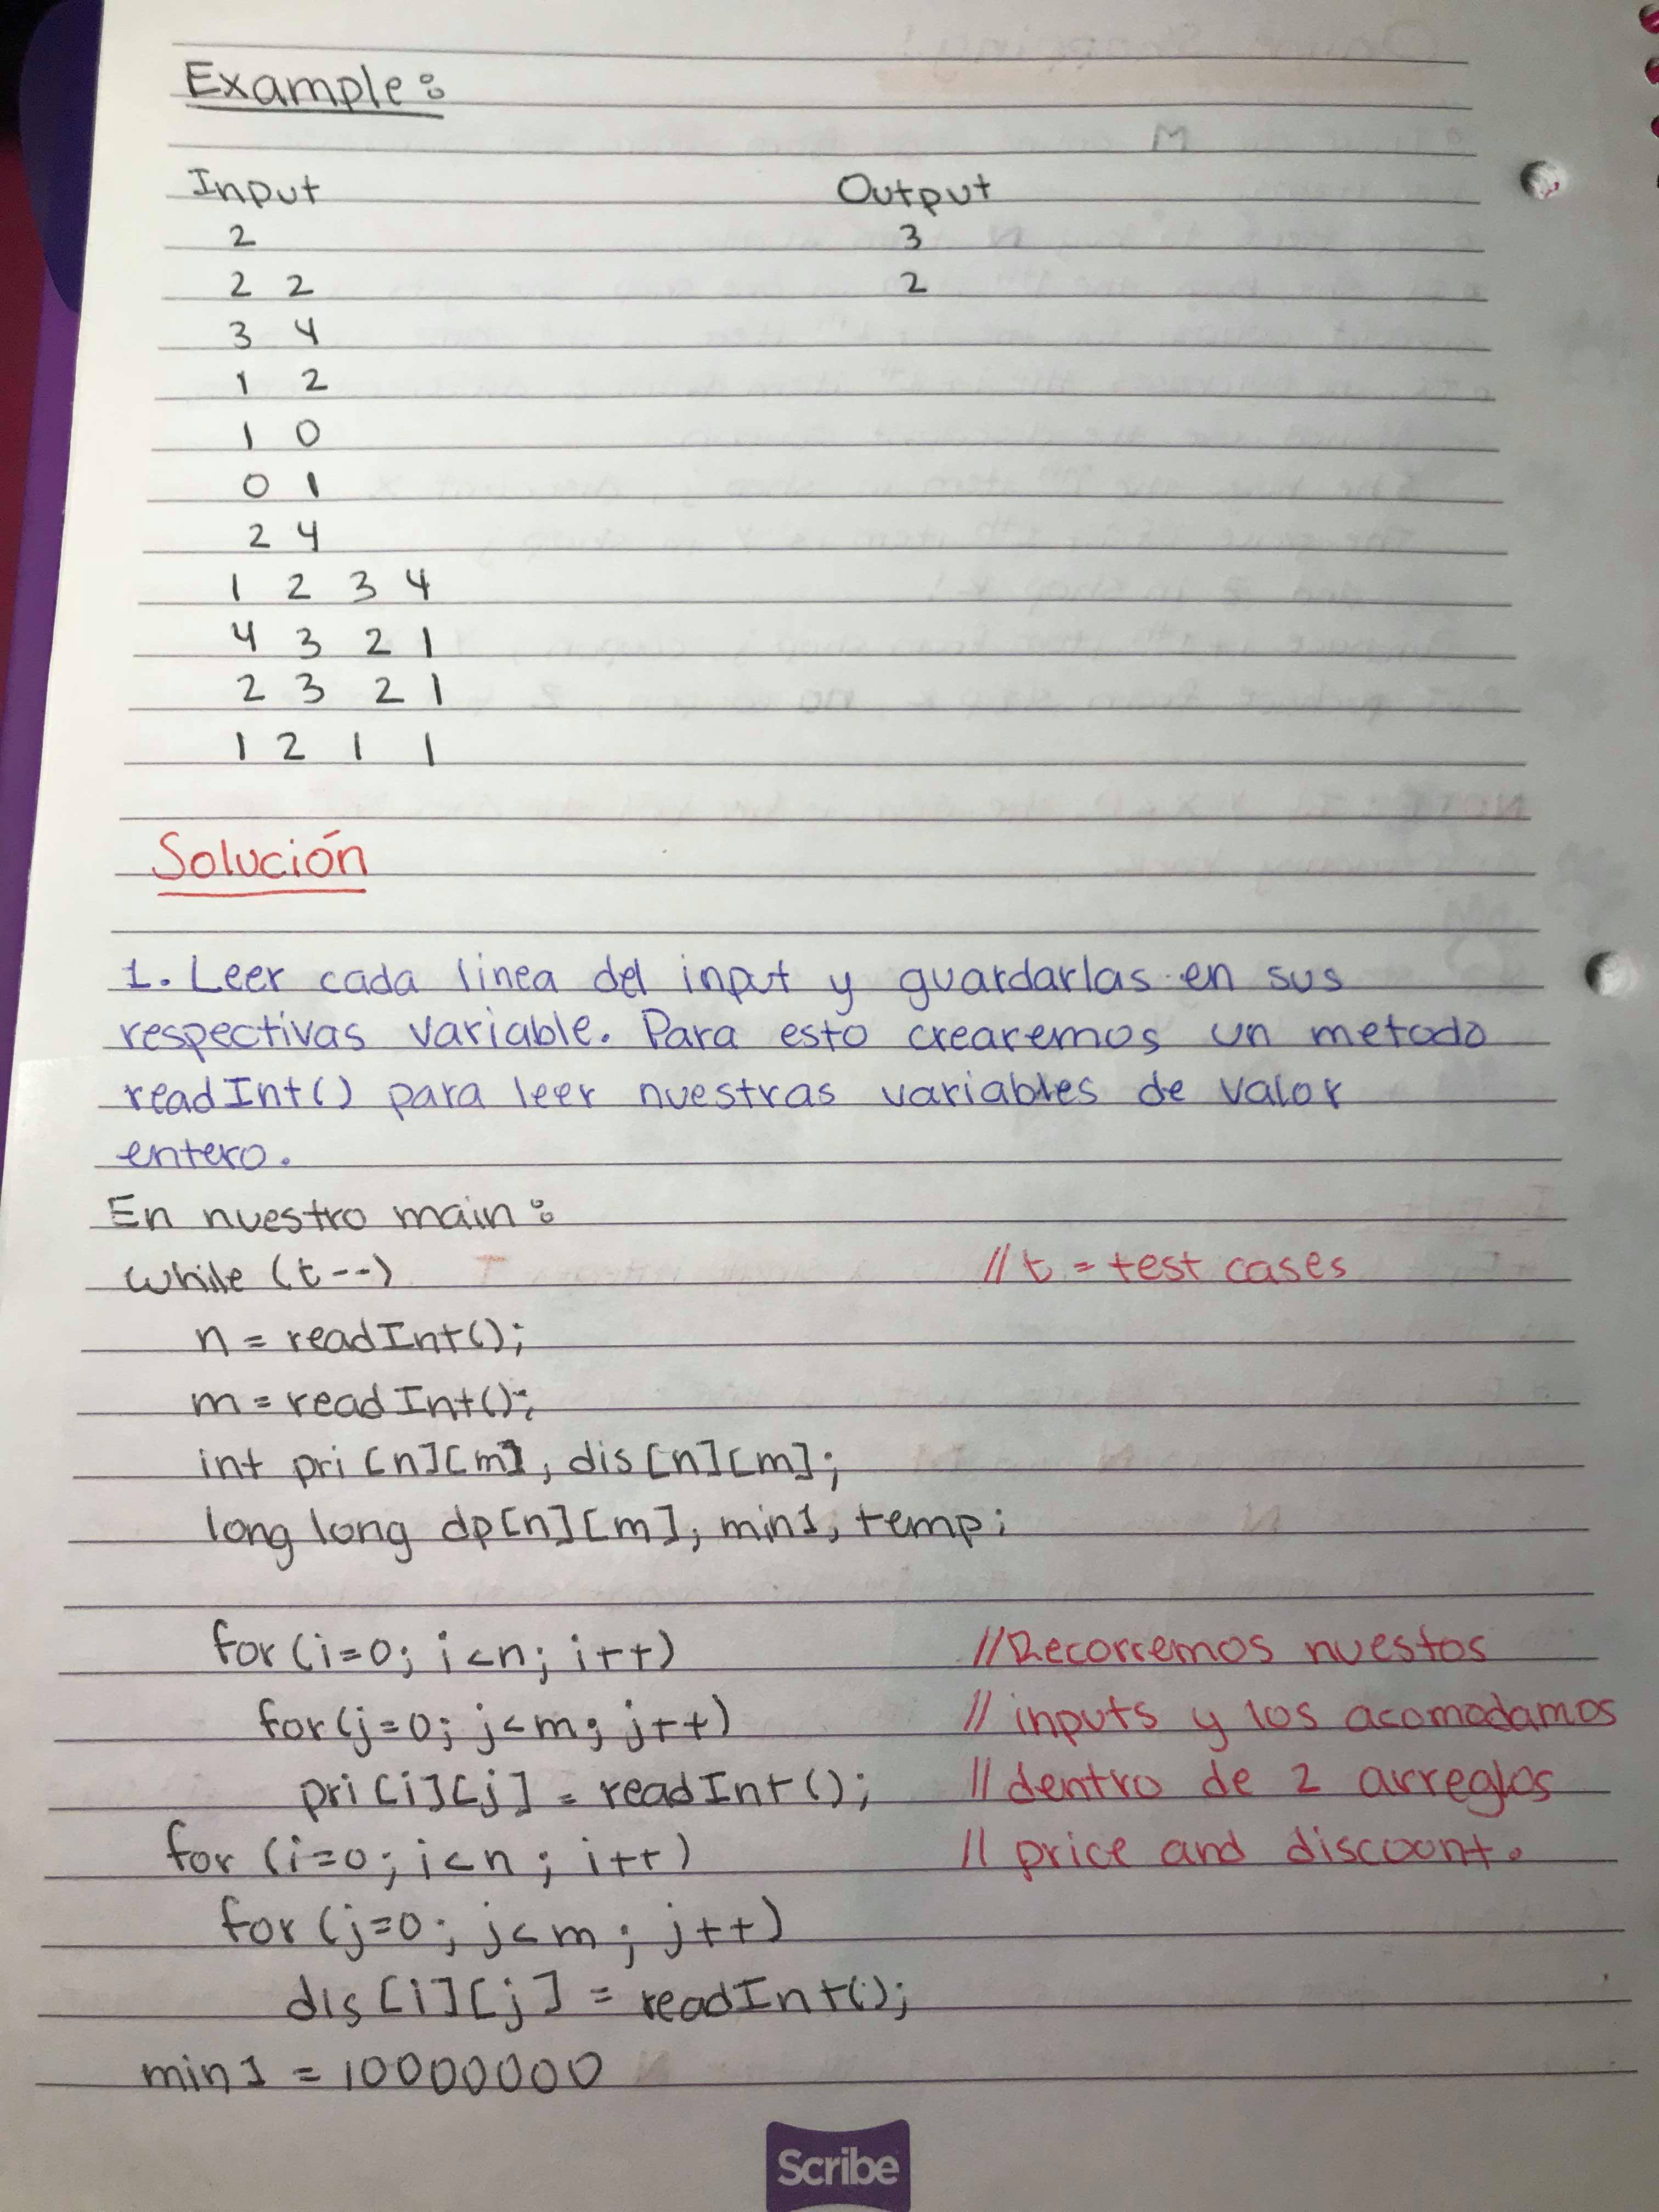 Example:
Input Output
2 3
2 2 2
3 4
1 2
1 0
0 1
2 4
1 2 3 4
4 3 2 1
2 3 2 1
1 2 1 1
Solución
1. Leer cada linea del input y guardarlas en sus
respectivas variable. Para esto crearemos un metodo
readInt() para leer nuestras variables de valor
entero.
En nuestro main:
while (t--) //t = test cases
n = readInt();
m = readInt();
int pri[n][m], dis[n][m];
long long dp[n][m], min1, temp;
for(i=0; i<n; i++) //Recorremos nuestos
for(j=0; j<m; j++) // inputs y los acomodamos
pri[i][j] = readInt(); // dentro de 2 arreglos
for (i=0; i<n; i++) // price and discount.
for (j=0; j<m; j++)
dis[i][j] = readInt();
min1 = 10000000
Scribe